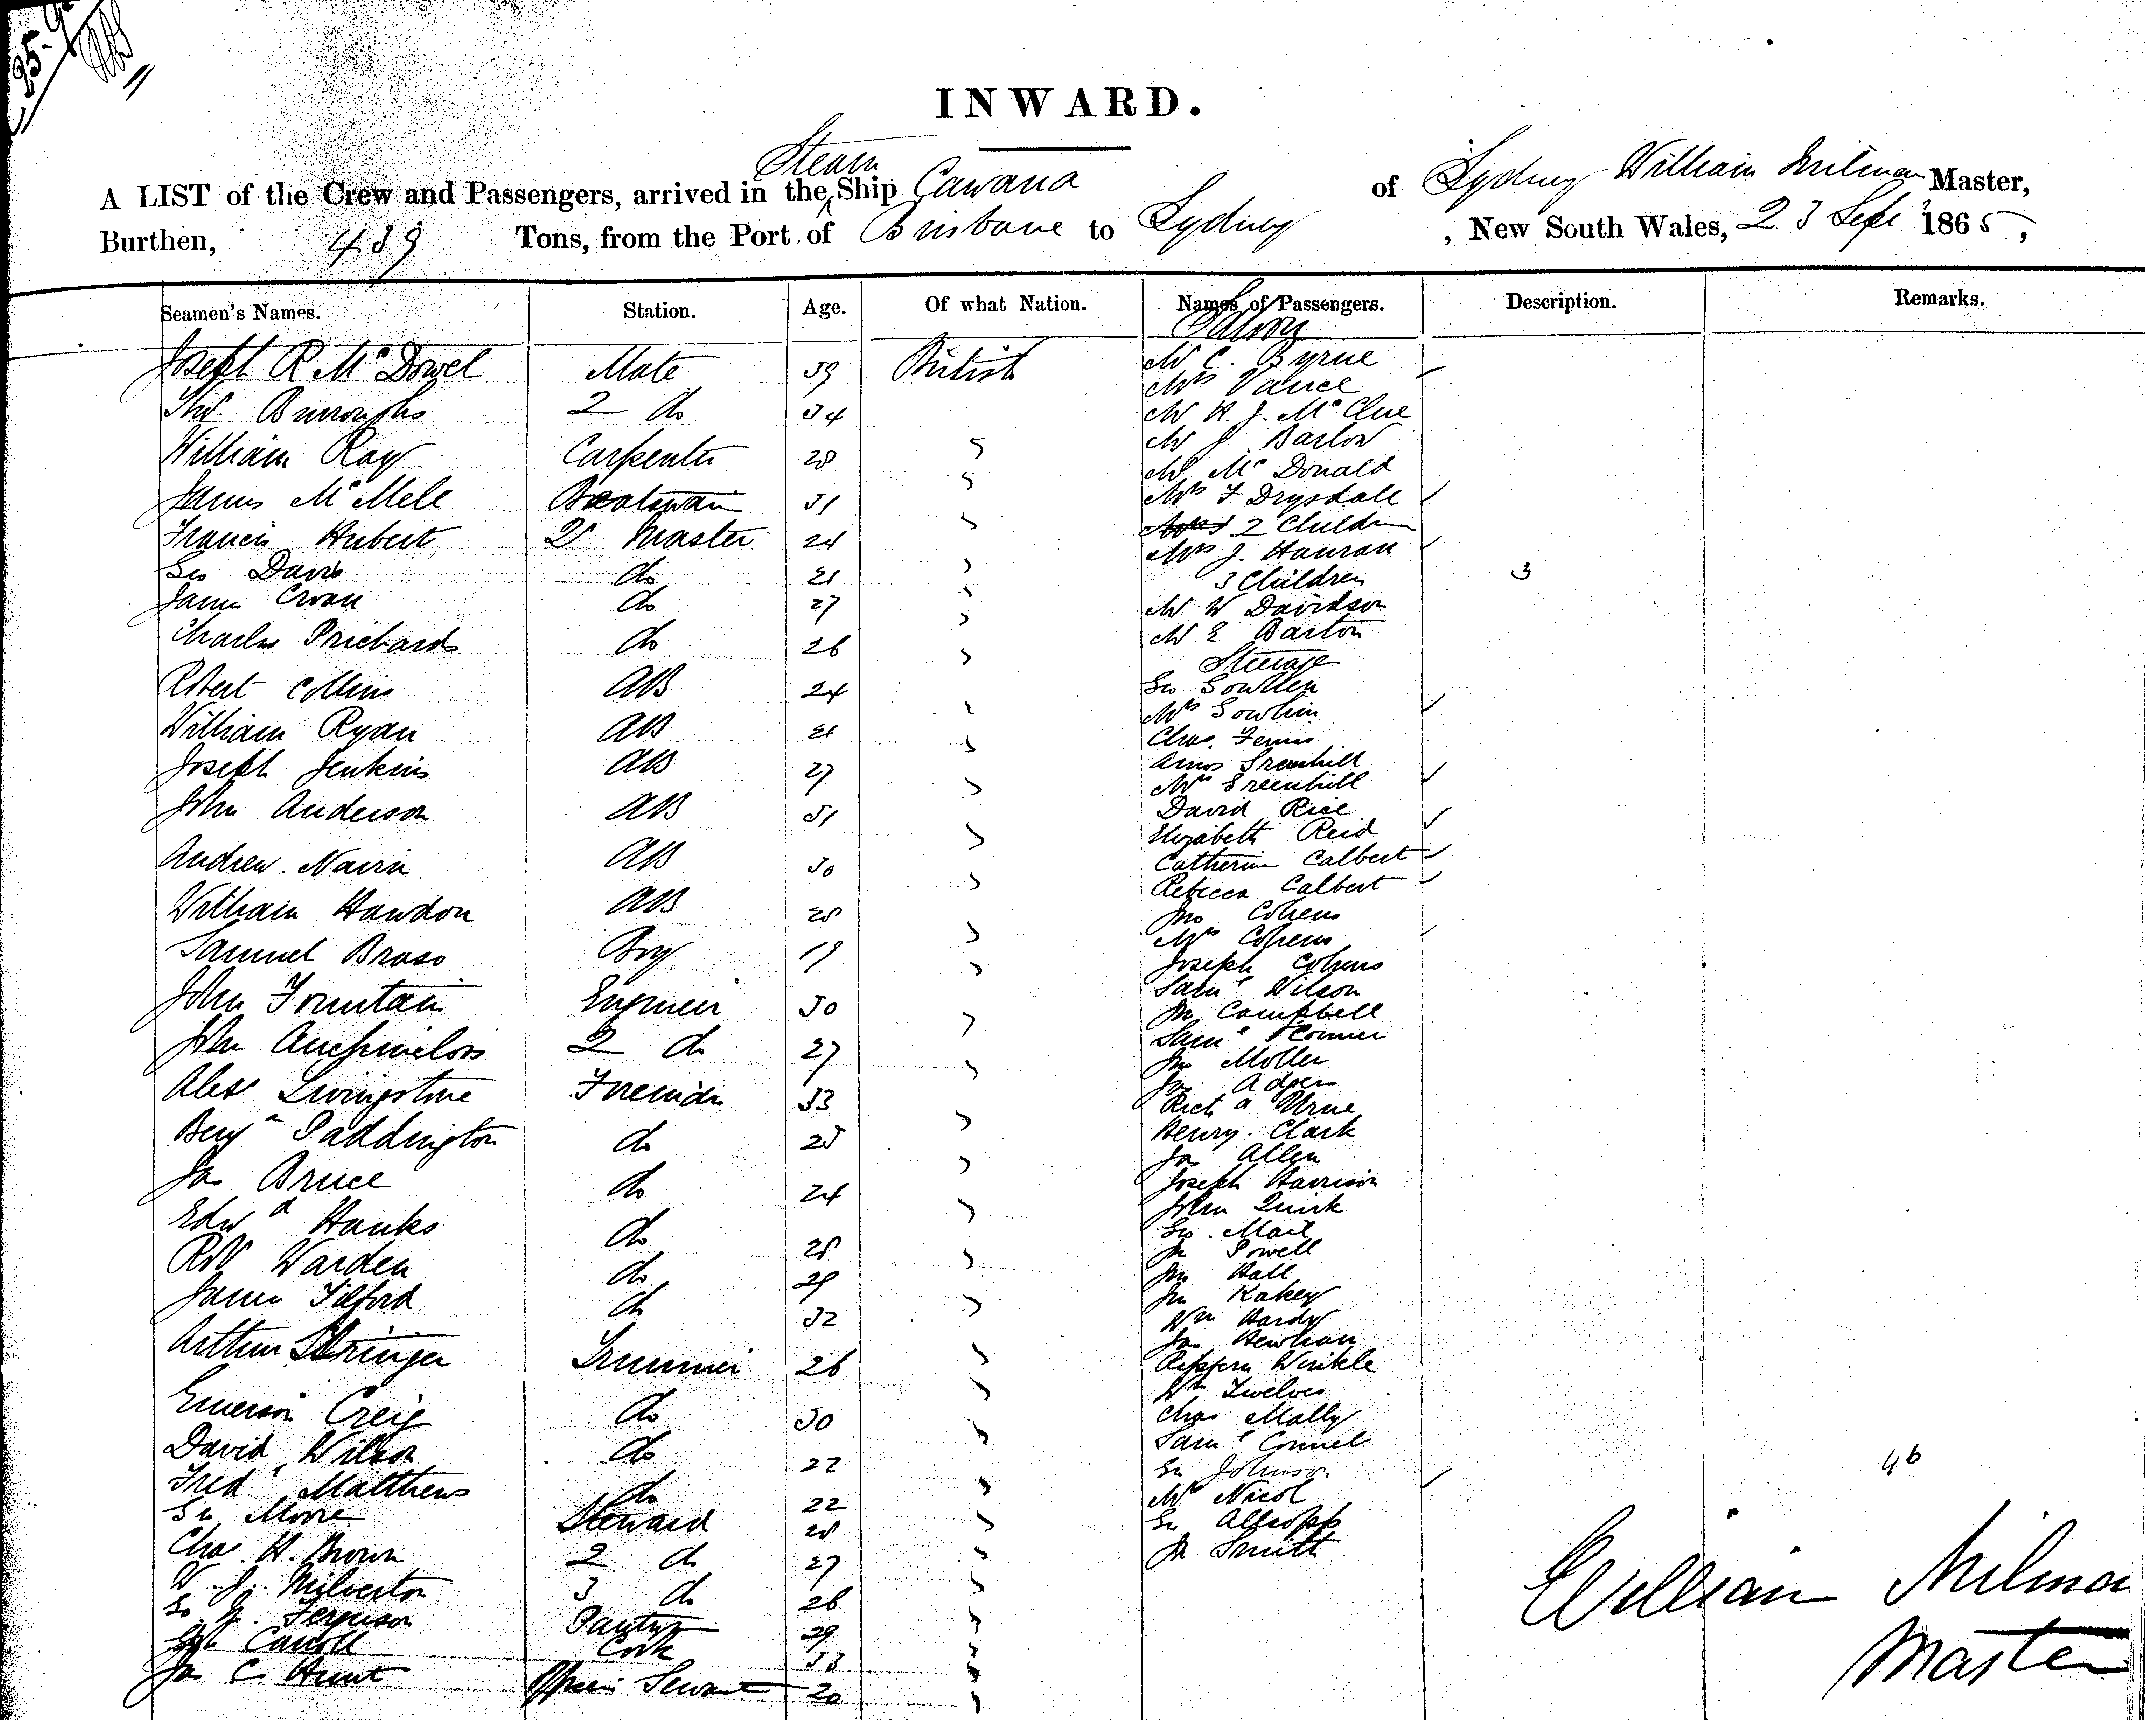 INWARD.
A LIST of the Crew and Passengers, arrived in the Steam Ship Cawana of Sydney William Milman Master,
Burthen, 439 Tons, from the Port of Brisbane to Sydney , New South Wales, 23 Sept 1865,
Seamen's Names. Station. Age. Of what Nation. Names of Passengers. Description. Remarks.
Joseph R McDowel Mate 39 British
Burroughs 2 do 34
William Ray Carpenter 28
James McMele Boatswain 31
Francis Hubert 2r Master 24
Geo Davis do 21
James Croan do 27
Charles Prichard do 26
Robert Collins AB 24
William Ryan AB 21
Joseph Jenkins AB 27
John Anderson AB 31
Andrew Nairn AB 30
William Hawdon AB 28
Samuel Brass Boy 19
John Fountain Engineer 30
John 2 do 27
Alexr Livingstone Fireman 33
Benjn Paddington do 25
Jas Bruce do 24
Edwd Hanks do 28
Robt Warden do 29
James Tilford do 32
Arthur Stringer Trimmer 26
Emerson Creig do 30
David Wilson do 22
Fred Matthews do 22
Geo Moore Steward 28
Chas H. Brown 2 do 27
W. J. Milverton 3 do 26
Geo Y. Ferguson Pantry 29
Carroll Cook 33
Jas C Hunt Servant 20
Saloon
Mr C. Byrne
Mrs Vance
Mr H J. McClue
Mr J Barlow
Mr McDonald
Mrs F Drysdall
2 Children
Mrs J. Hanran
3 Children 3
Mr W Davidson
Mr E Barton
Steerage
Geo Gowllen
Mrs Gowlin
Chas. Ferris
Amos Greenhill
Mrs Greenhill
David Rice
Elizabeth Reid
Catherine Calbert
Rebecca Calbert
Jno Cohens
Mrs Cohens
Joseph Cohens
Saml Wilson
Jno Campbell
Saml Conner
Jno Moller
Jas
Richd Urne
Henry Clark
Jas Allen
Joseph Harrison
John Quirk
Geo. Mail
Jno Powell
Jno Hall
Jno Kakey
Wm Hardy
Jas Hewhan
Winkle
Wm Twelves
Chas Mally
Saml Connel
Geo Johnson
Mrs Nicol
Geo Allsopp
Jn Smith
46
William Milman
Master